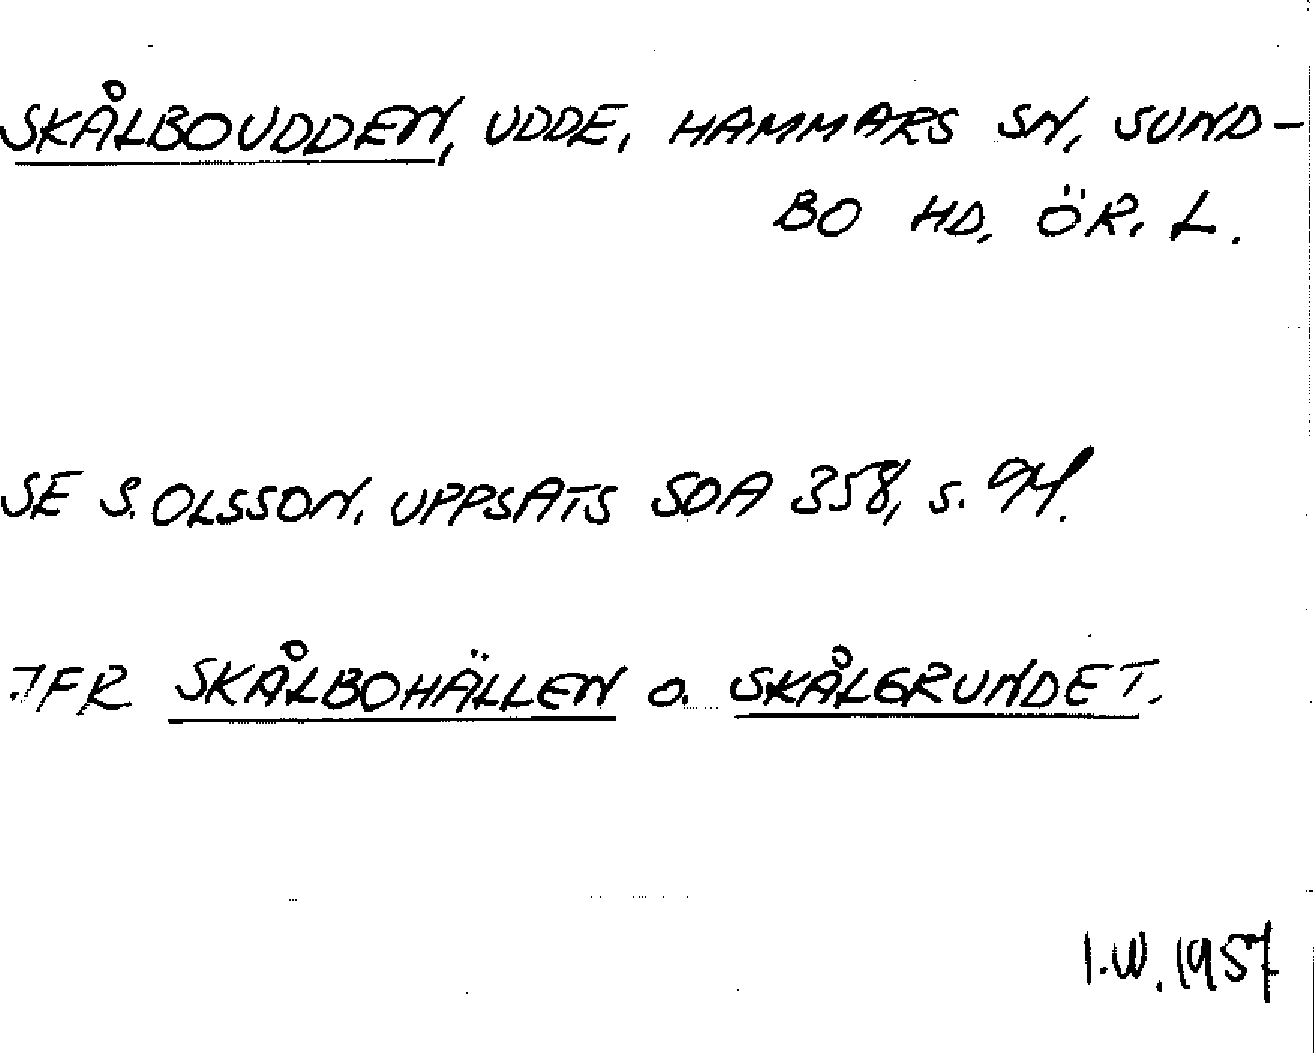 SKÅLBOUDDEN, UDDE, HAMMARS SN, SUND-
BO HD, ÖR. L.
SE S. OLSSON, UPPSATS SOA 358, S. 94.
JFR SKÅLBOHÄLLEN O. SKÅLGRUNDET.
I.W. 1957